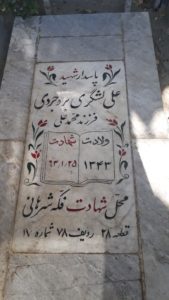 پاسدار شهید
علی لشگری بروجردی
فرزند محمد علی
ولادت شهادت
۱۳۴۳ ۶۳,۱,۲۵
محل شهادت فکه شرهانی
قطعه ۲۸ ردیف ۷۸ شماره ۱۷